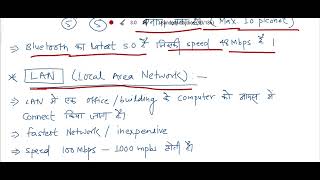 Max 10 piconet
⇒ Bluetooth का Latest 5.0 है जिसकी speed 48 Mbps है।
* LAN (Local Area Network) :-
⇒ LAN में एक office / building के computer को आपस में
Connect किया जाता है।
⇒ fastest Network / inexpensive
⇒ speed 100 Mbps - 1000 mpbs होती है।